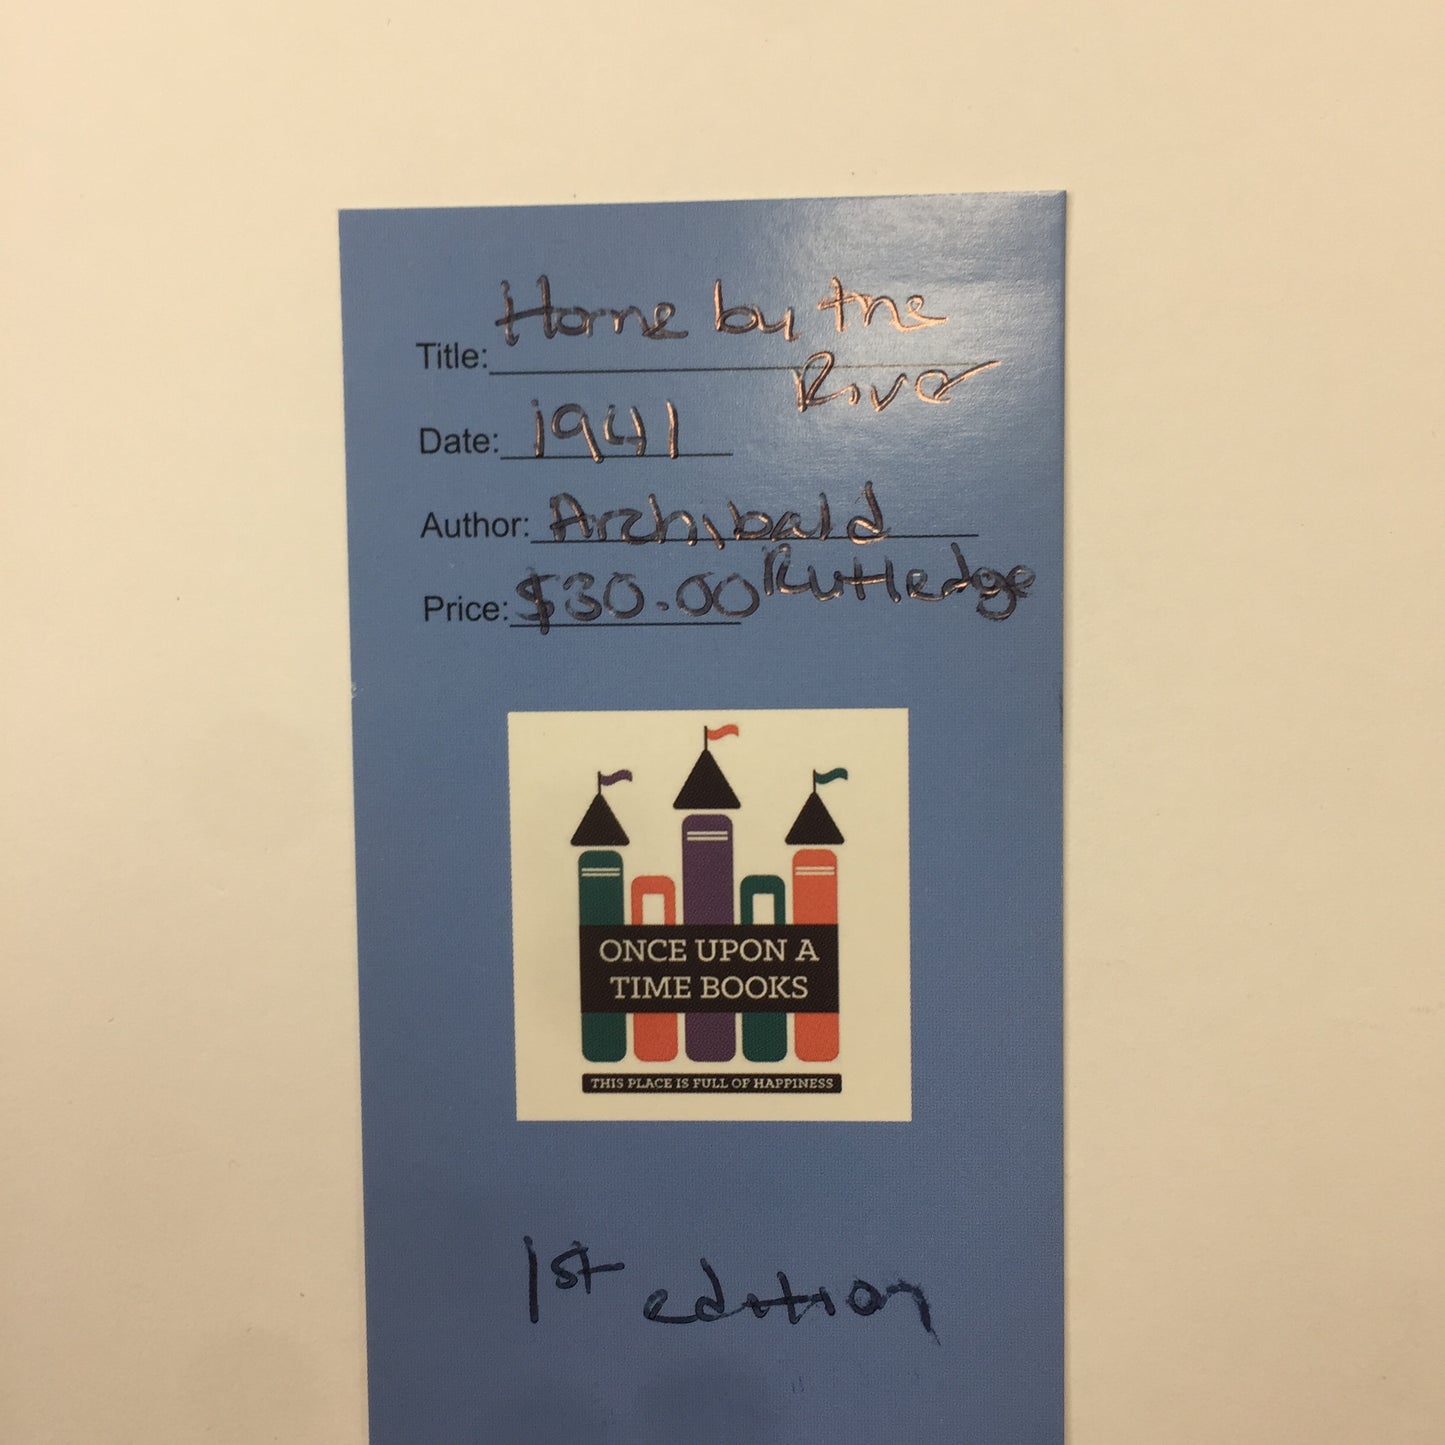 Title: Home by the
River
Date: 1941
Author: Archibald
Rutledge
Price: $30.00
ONCE UPON A
TIME BOOKS
THIS PLACE IS FULL OF HAPPINESS
1st edition